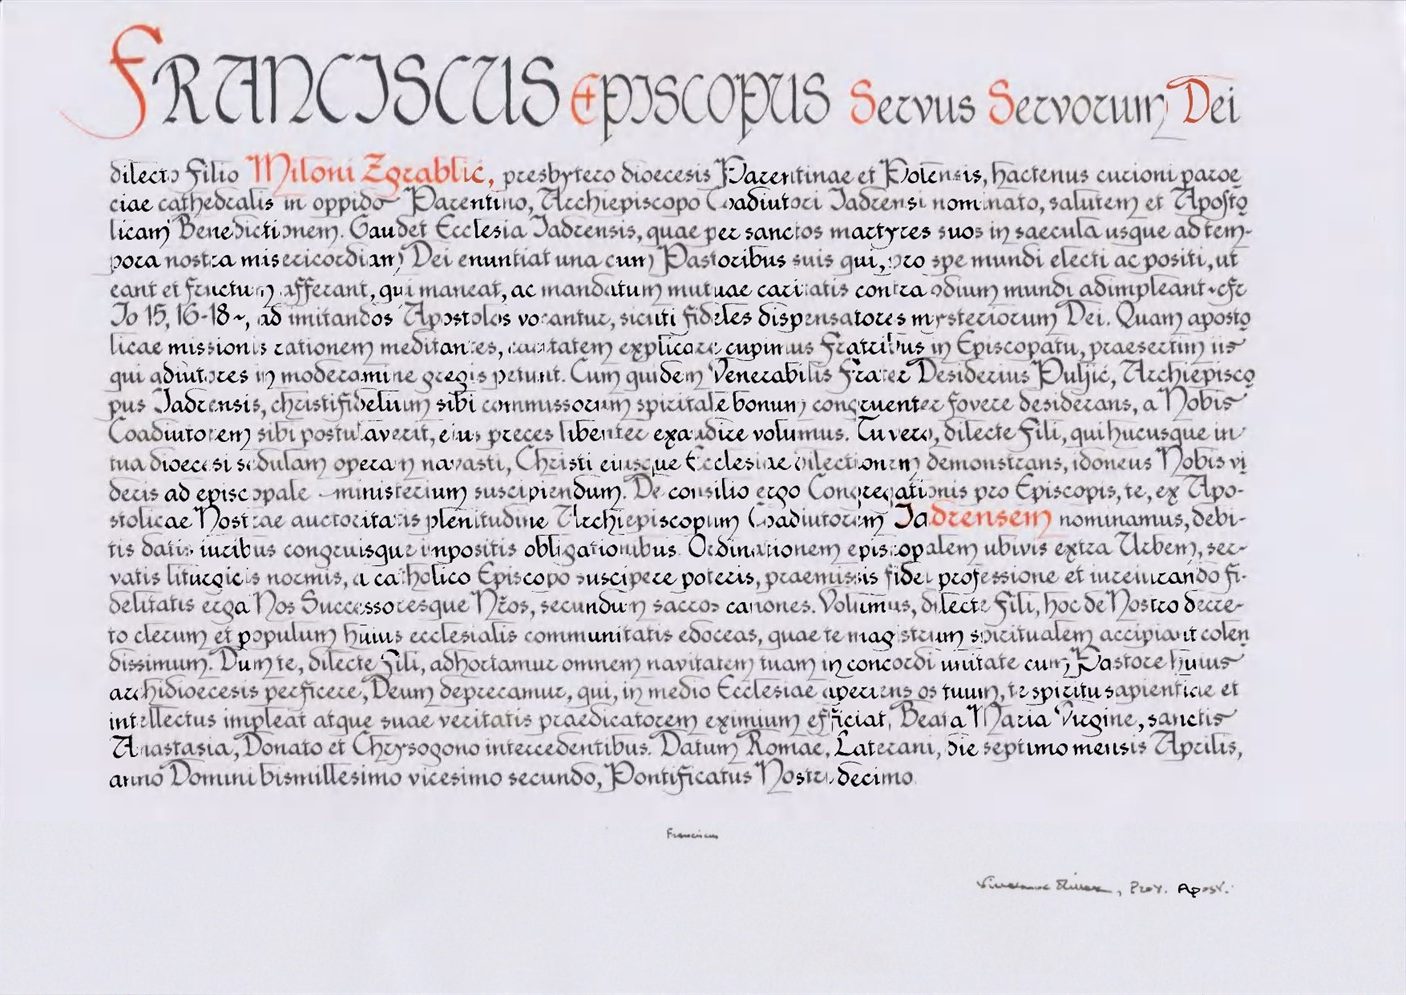 FRANCISCUS EPISCOPUS Servus Servorum Dei
dilecto Filio Miloni Zgrablić, presbytero dioecesis Parentinae et Polensis, hactenus curioni paroe
ciae cathedralis in oppido Parentino, Archiepiscopo Coadiutori Iadrensi nominato, salutem et Aposto
licam Benedictionem. Gaudet Ecclesia Iadrensis, quae per sanctos martyres suos in saecula usque ad tem-
pora nostra misericordiam Dei enuntiat una cum Pastoribus suis qui, pro spe mundi electi ac positi, ut
eant et fructum afferant, qui maneat, ac mandatum mutuae caritatis contra odium mundi adimpleant-cfr
Io 15, 16-18-, ad imitandos Apostolos vocantur, sicuti fideles dispensatores mysteriorum Dei. Quam aposto
licae missionis rationem meditantes, caritatem explicare cupimus Fratribus in Episcopatu, praesertim iis
qui adiutores in moderamine gregis petunt. Cum quidem Venerabilis Frater Desiderius Puljić, Archiepisco
pus Iadrensis, christifidelium sibi commissorum spiritale bonum congruenter fovere desiderans, a Nobis
Coadiutorem sibi postulaverit, eius preces libenter exaudire volumus. Tu vero, dilecte Fili, qui hucusque in
tua dioecesi sedulam operam navasti, Christi eiusque Ecclesiae dilectionem demonstrans, idoneus Nobis vi
deris ad episcopale ministerium suscipiendum. De consilio ergo Congregationis pro Episcopis, te, ex Apo-
stolicae Nostrae auctoritatis plenitudine Archiepiscopum Coadiutorem Iadrensem nominamus, debi-
tis datis iuribus congruisque impositis obligationibus. Ordinationem episcopalem ubivis extra Urbem, ser-
vatis liturgicis normis, a catholico Episcopo suscipere poteris, praemissis fidei professione et iureiurando fi-
delitatis erga Nos Successoresque Nr̃os, secundum sacros canones. Volumus, dilecte Fili, hoc de Nostro decre-
to clerum et populum huius ecclesialis communitatis edoceas, quae te magistrum spiritualem accipiant colen
dissimum. Dum te, dilecte Fili, adhortamur omnem navitatem tuam in concordi unitate cum Pastore huius
archidioecesis perficere, Deum deprecamur, qui, in medio Ecclesiae aperiens os tuum, te spiritu sapientiae et
intellectus impleat atque suae veritatis praedicatorem eximium efficiat, Beata Maria Virgine, sanctis
Anastasia, Donato et Chrysogono intercedentibus. Datum Romae, Laterani, die septimo mensis Aprilis,
anno Domini bismillesimo vicesimo secundo, Pontificatus Nostri decimo.
Franciscus
, Prot. Apost.